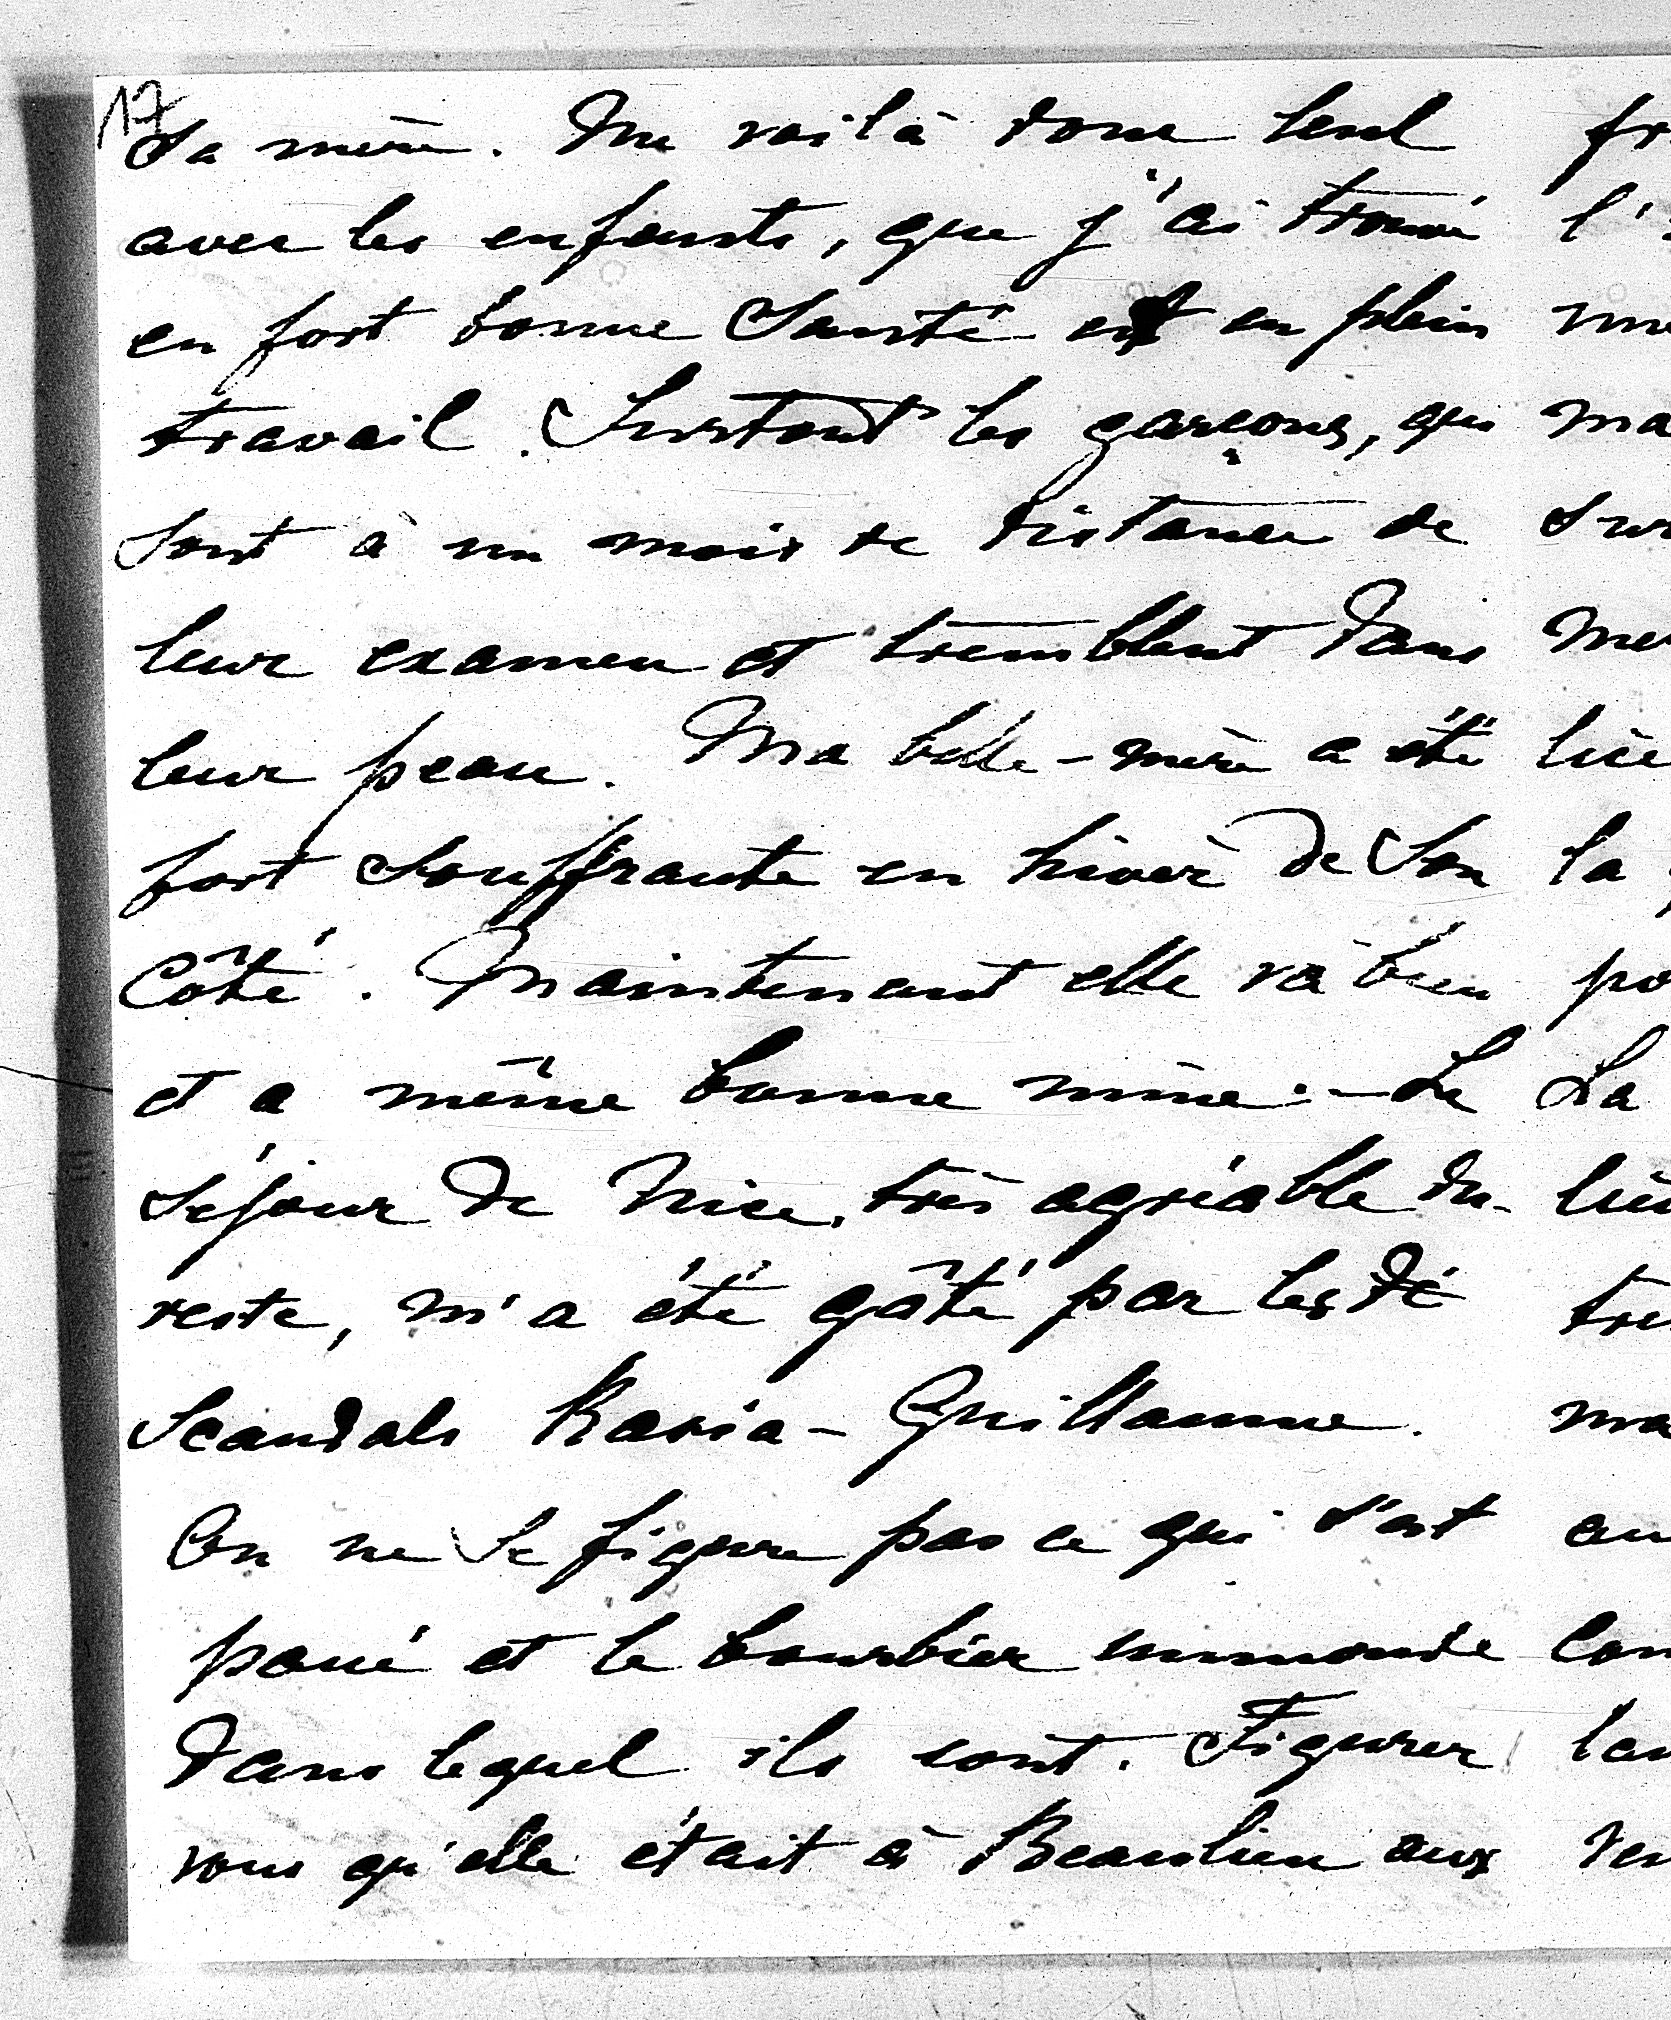 17
sa mère. Me voilà donc seul
avec les enfants, que j'ai trouvé
en fort bonne santé et en plein
travail. Surtout les garçons, qui
sont à un mois de distance de
leur examen et tremblent dans
leur peau. Ma belle-mère a été
fort souffrante en hiver de son
côté. Maintenant elle va bien
et a même bonne mine. - Le
séjour de Nice, très agréable du
reste, m'a été gâté par les
scandals Rosia-Guillaume.
On ne se figure pas ce qui s'est
passé et le bourbier immonde
dans lequel ils sont. Figurez
vous qu'elle était à Beaulieu aux